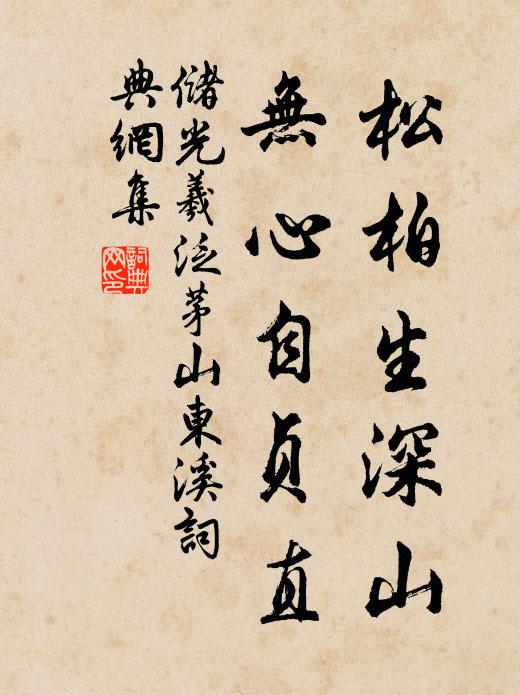 松柏生深山
無心自貞直
儲光羲泛茅山東溪詞
典網集
詞典
网印